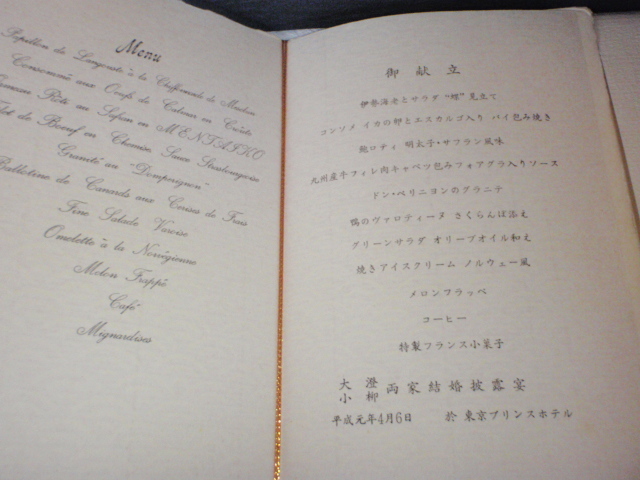 Menu
Papillon de Langouste à la Chiffonnade de Maslon
Consommé aux Oeufs de Calmar en Croûte
Ormeau Rôti au Safran en MENTAIKO
Filet de Boeuf en Chemise, Sauce Strasbourgeoise
Granité au "Domperignon"
Ballotine de Canards aux Cerises de Frais
Fine Salade Varoise
Omelette à la Norvégienne
Melon Frappé
Café
Mignardises
御献立
伊勢海老とサラダ“蝶”見立て
コンソメ イカの卵とエスカルゴ入り パイ包み焼き
鮑ロティ 明太子・サフラン風味
九州産牛フィレ肉キャベツ包みフォアグラ入りソース
ドン・ペリニヨンのグラニテ
鴨のヴァロティーヌ さくらんぼ添え
グリーンサラダ オリーブオイル和え
焼きアイスクリーム ノルウェー風
メロンフラッペ
コーヒー
特製フランス小菓子
大澄
小柳 両家結婚披露宴
平成元年4月6日 於 東京プリンスホテル